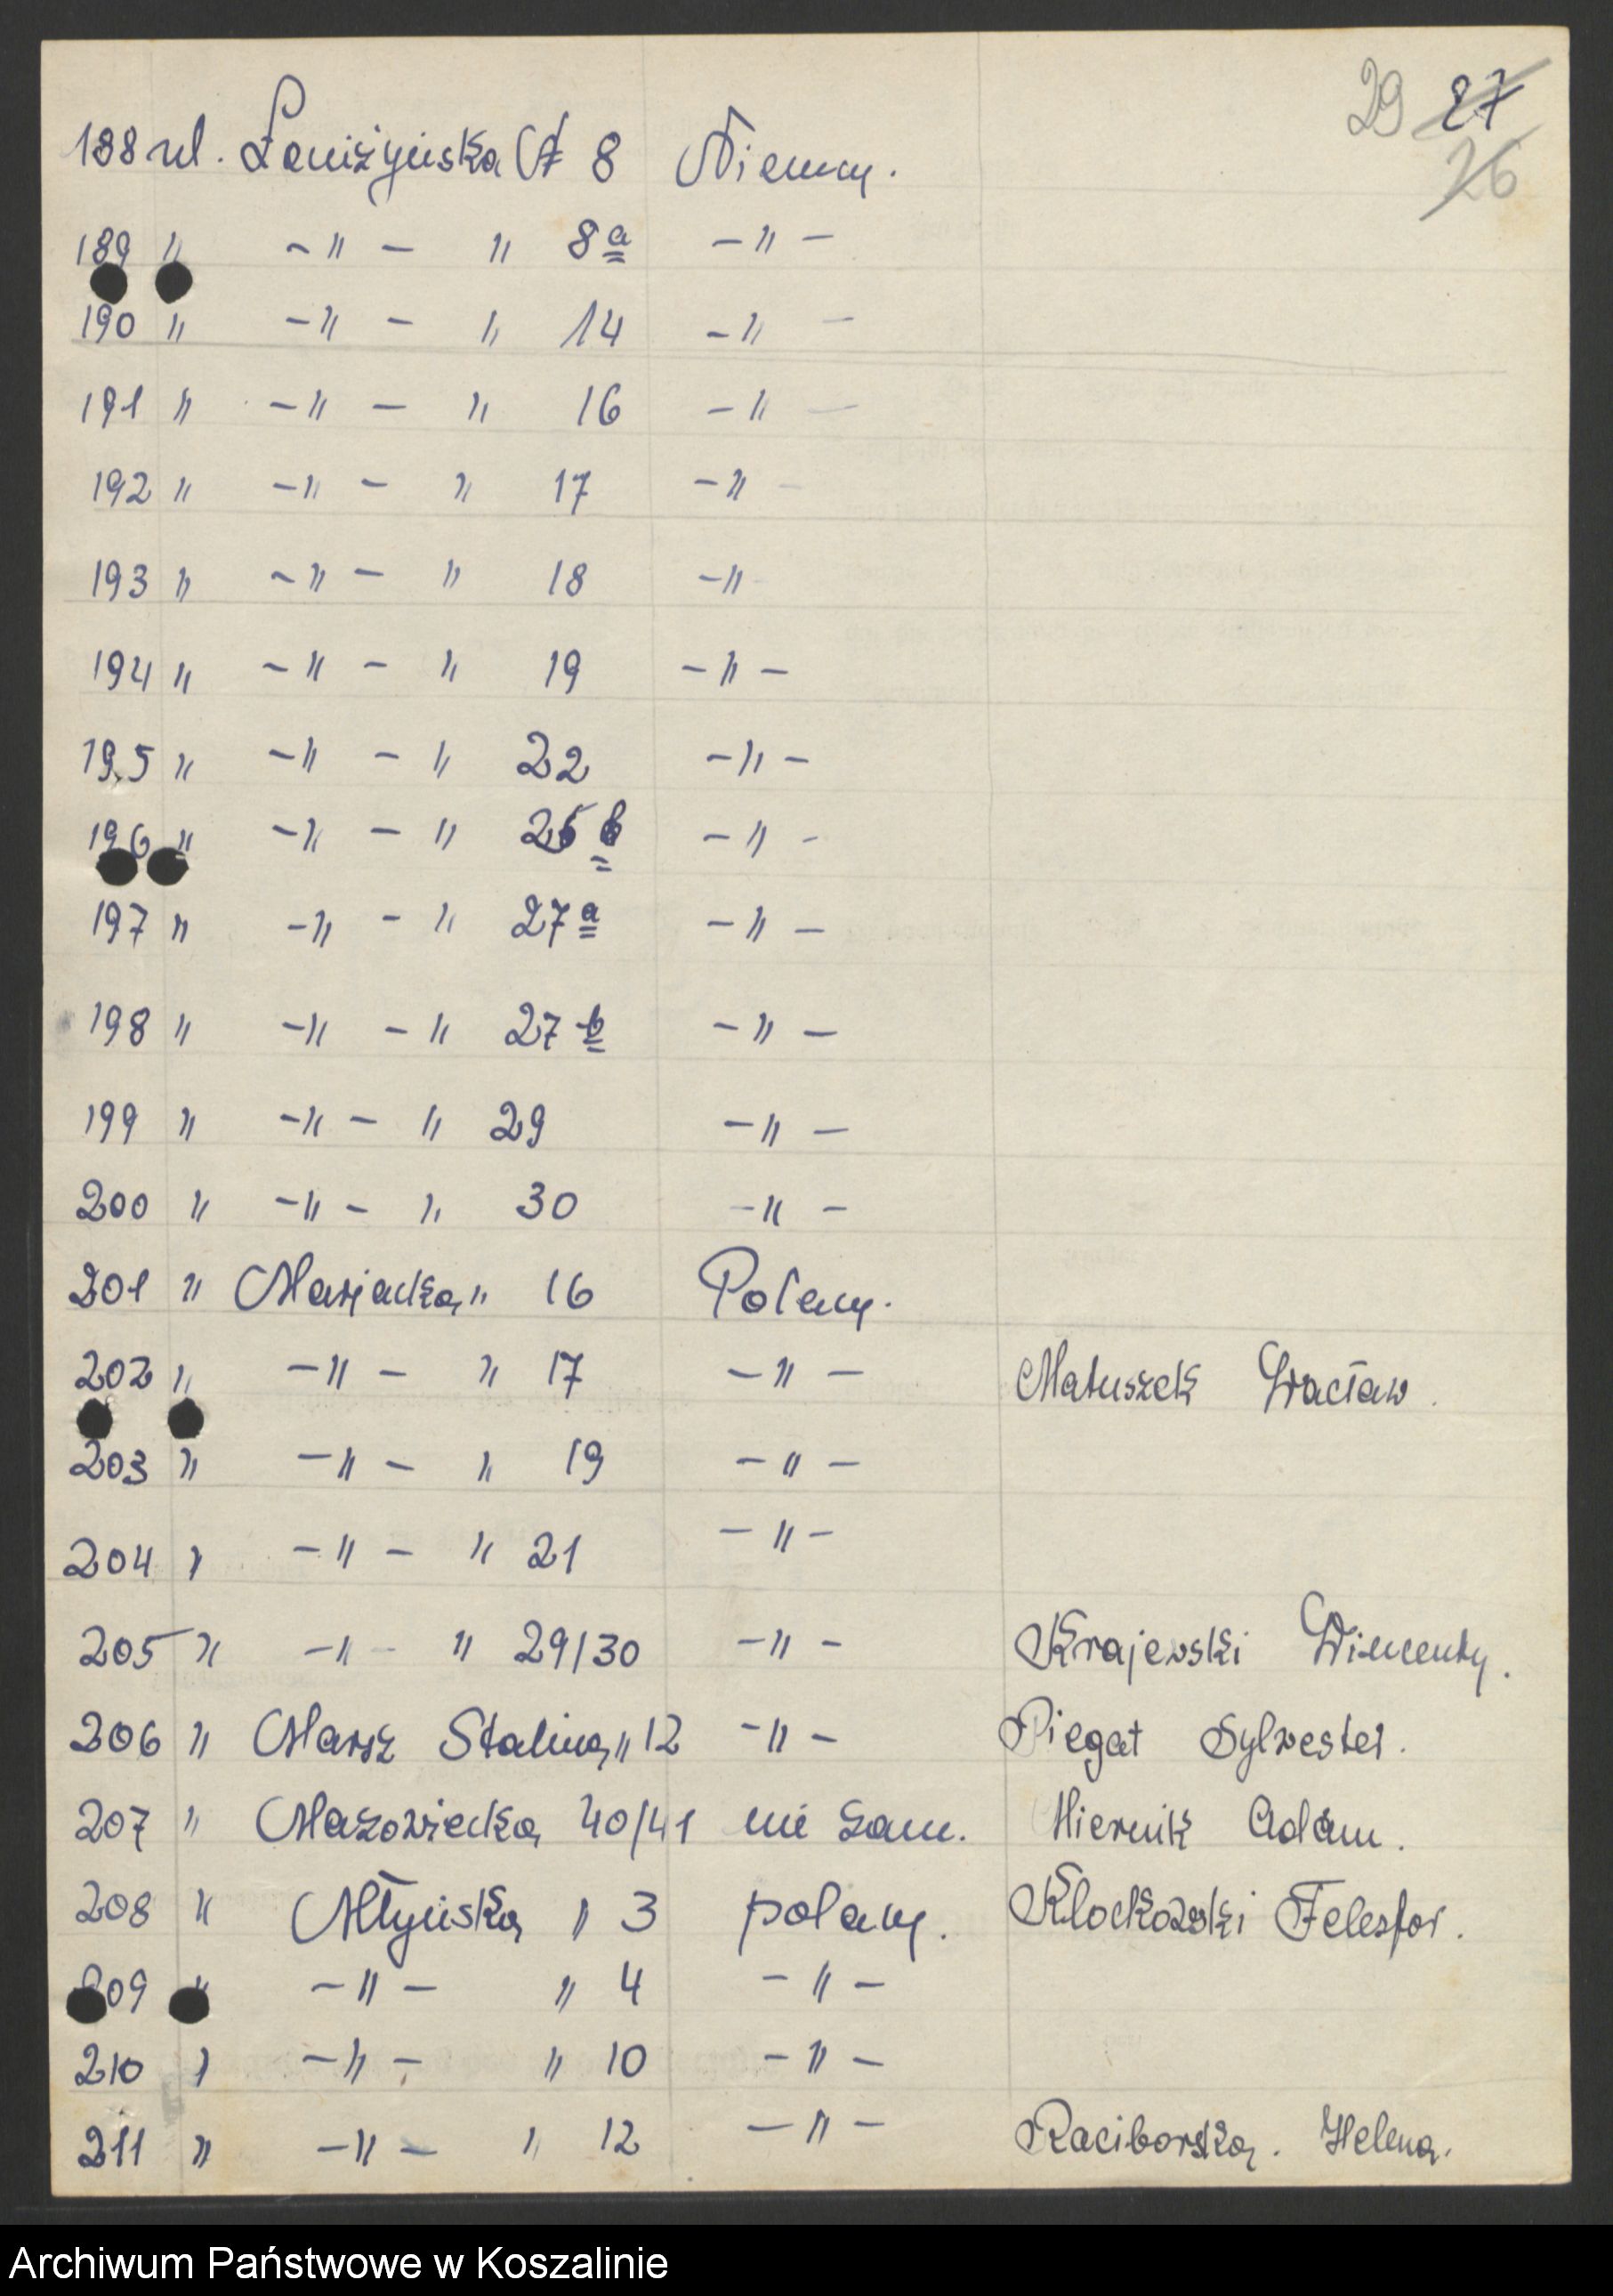 29 27
26
188 ul. Łomżyńska № 8 Niemcy.
189 " -"- " 8a -"-
190 " -"- " 14 -"-
191 " -"- " 16 -"-
192 " -"- " 17 -"-
193 " -"- " 18 -"-
194 " -"- " 19 -"-
195 " -"- " 22 -"-
196 " -"- " 25 b -"-
197 " -"- " 27a -"-
198 " -"- " 27 b -"-
199 " -"- " 29 -"-
200 " -"- " 30 -"-
201 " Marjacka " 16 Polacy.
202 " -"- " 17 -"- Matuszek Wacław.
203 " -"- " 19 -"-
204 " -"- " 21 -"-
205 " -"- " 29/30 -"- Krajewski Wincenty.
206 " Marsz Stalina " 12 -"- Piegat Sylwester.
207 " Mazowiecka 40/41 nie zam. Miernik Adam.
208 " Młyńska " 3 polacy. Klockowski Telesfor.
209 " -"- " 4 -"-
210 " -"- " 10 -"-
211 " -"- " 12 -"- Raciborska. Helena.
Archiwum Państwowe w Koszalinie